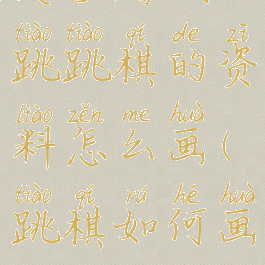 tiào tiào qí de zī
跳跳棋的资
liào zěn me huà
料怎么画(
tiào qí rú hé huà
跳棋如何画